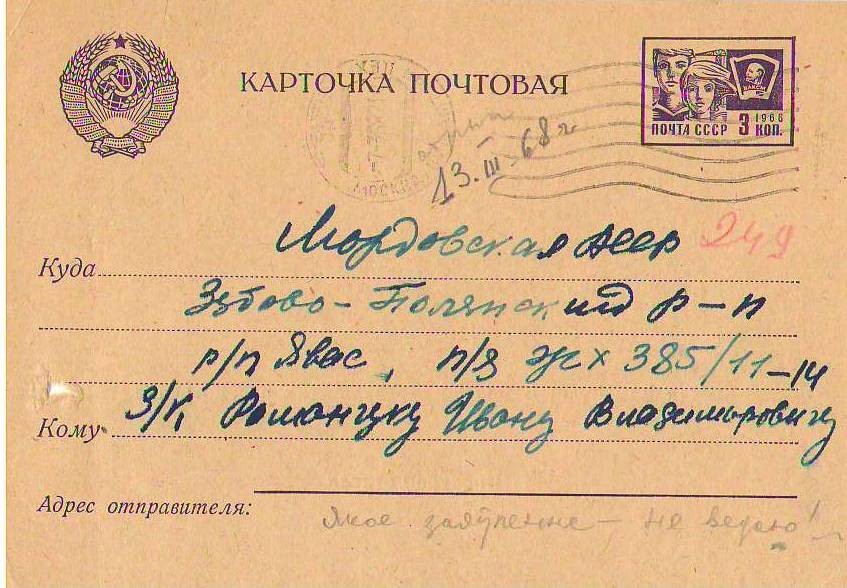 КАРТОЧКА ПОЧТОВАЯ
ПОЧТА СССР 3 1966 КОП.
ВЛКСМ
МОСКВА
13.III-68 г.
Куда Мордовская АССР 249
Зубово-Полянский р-н
р/п Явас, п/я ЖХ 385/11-14
Кому З/К Романчуку Ивану Владимировичу
Адрес отправителя:
якое не ведаю!